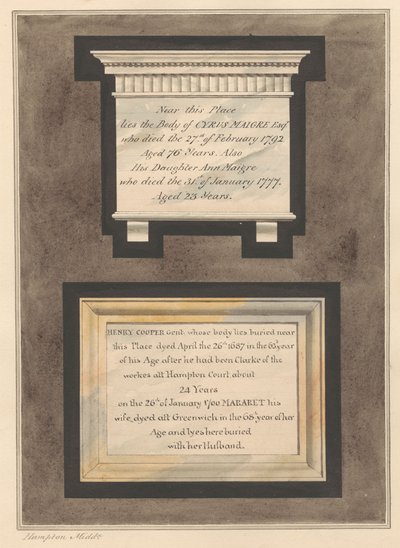 Near this Place
lies the Body of CYRUS MAIGRE Esqr
who died the 27th of February 1792
Aged 76 Years. Also
His Daughter Ann Maigre
who died the 31st of January 1777.
Aged 23 Years.
HENRY COOPER Gent. whose body lies buried near
this Place dyed April the 26th 1687 in the 65 year
of his Age after he had been Clarke of the
workes att Hampton Court about
24 Years
on the 26th of January 1700 MARARET his
wife dyed att Greenwich in the 68 year of her
Age and lyes here buried
with her Husband.
Hampton Middx